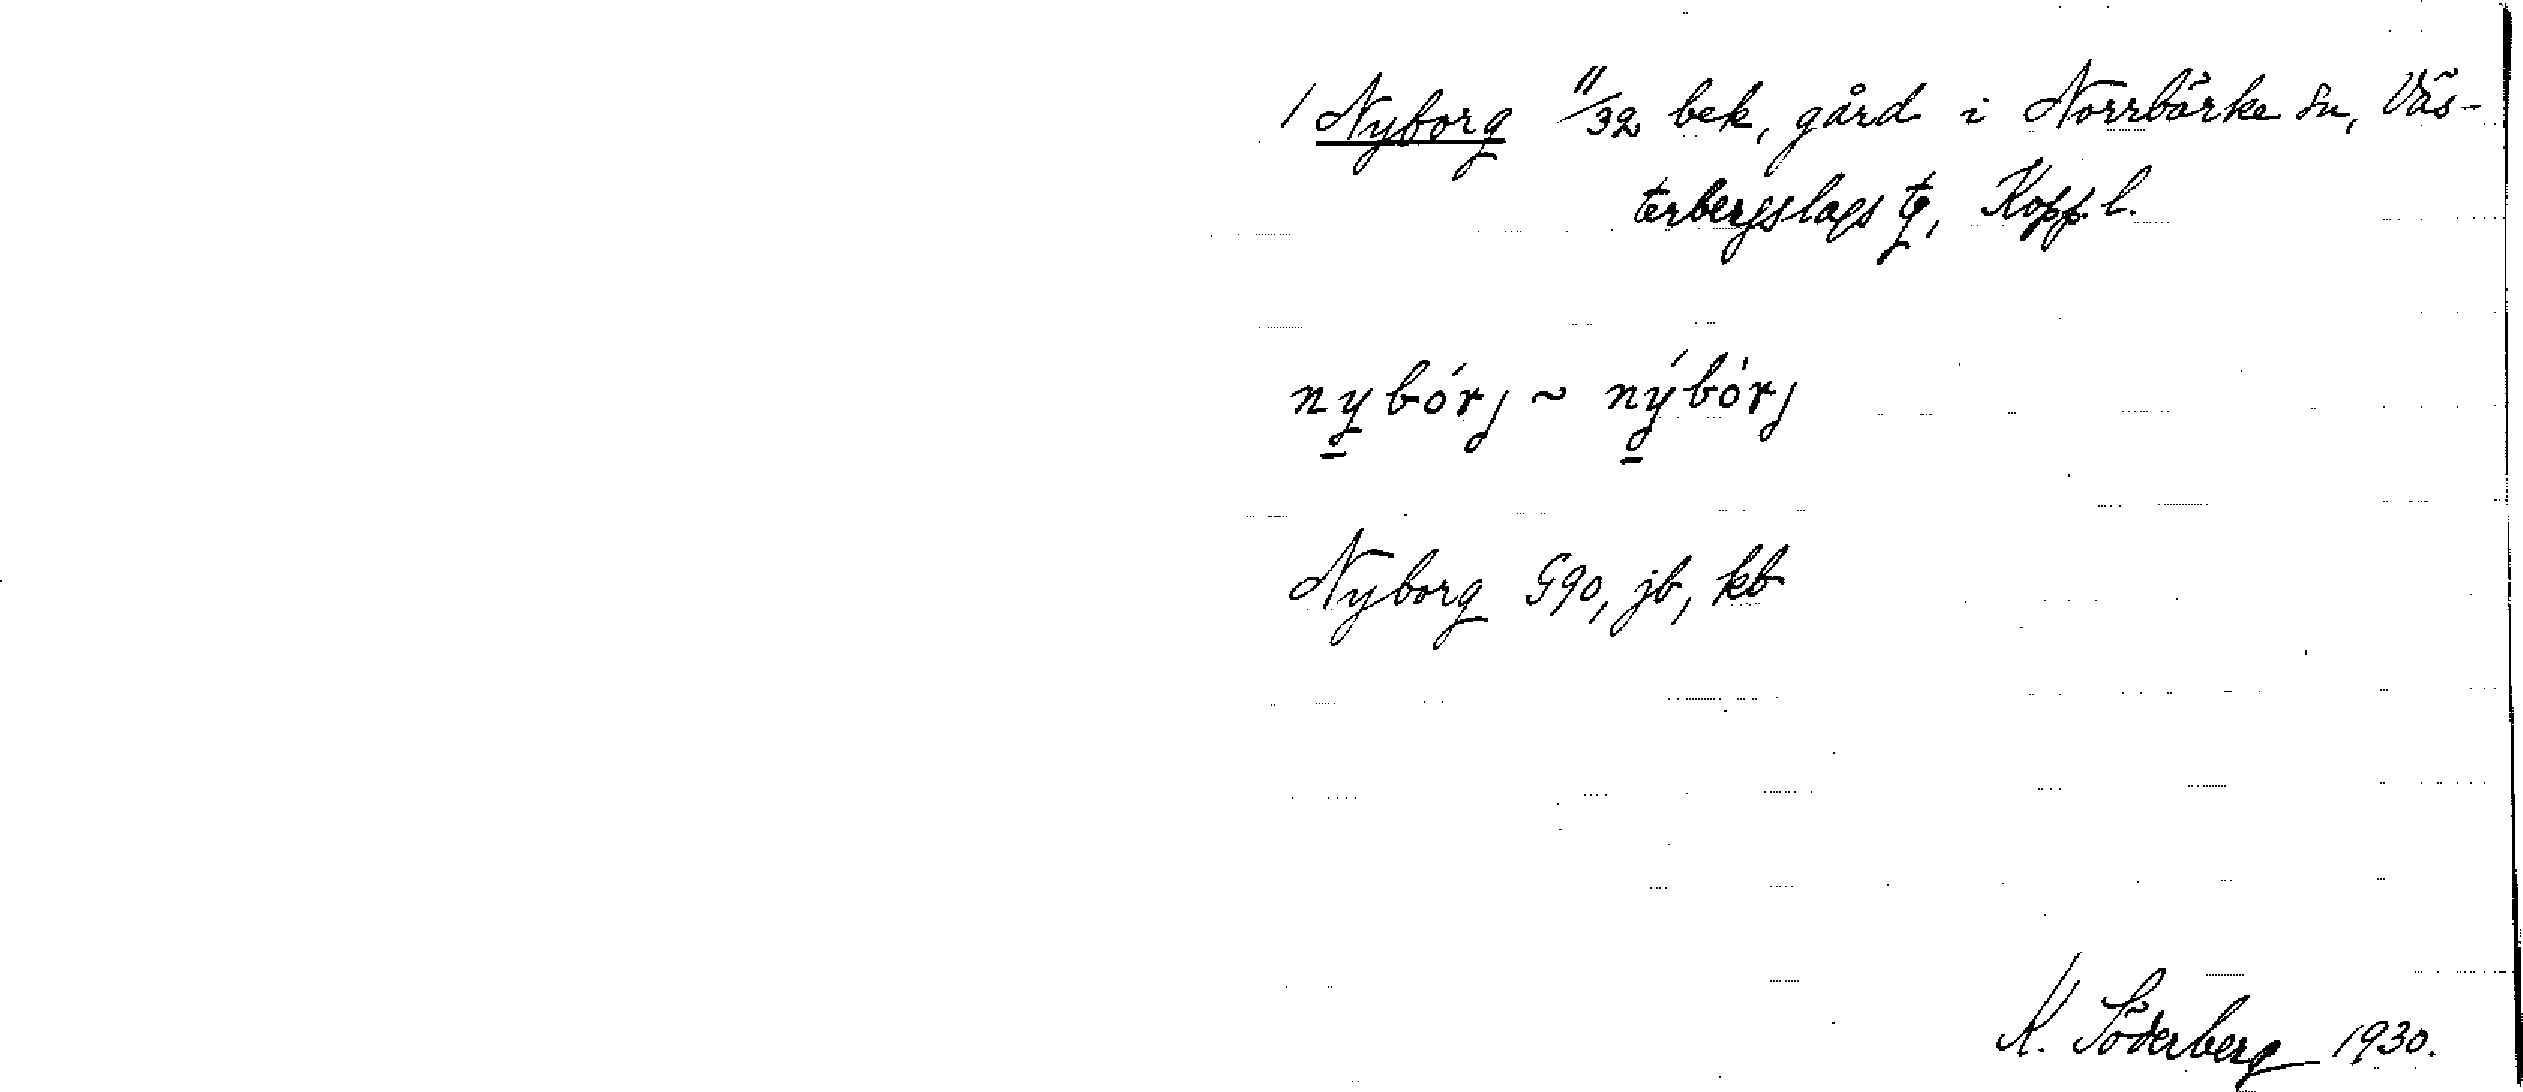 / Nyborg 11/32 bek, gård i Norrbärke sn, Väs-
terbergslags tg, Kopp. l.
ny̱bórj ~ ný̱bórj
Nyborg G90, jb, kb
K. Söderberg 1930.